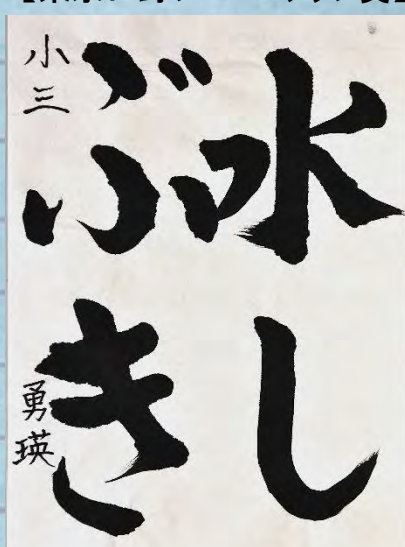 水し
ぶき
小三
勇瑛